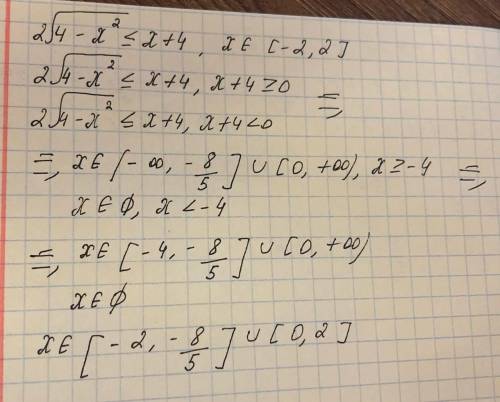 2√(4 - x²) ≤ x+4, x ∈ [-2, 2]
2√(4-x²) ≤ x+4, x+4 ≥ 0 =,
2√(4-x²) ≤ x+4, x+4 < 0
=, x ∈ [-∞, -8/5] ∪ [0, +∞), x ≥ -4 =,
x ∈ ∅, x < -4
=, x ∈ [-4, -8/5] ∪ [0, +∞)
x ∈ ∅
x ∈ [-2, -8/5] ∪ [0, 2]